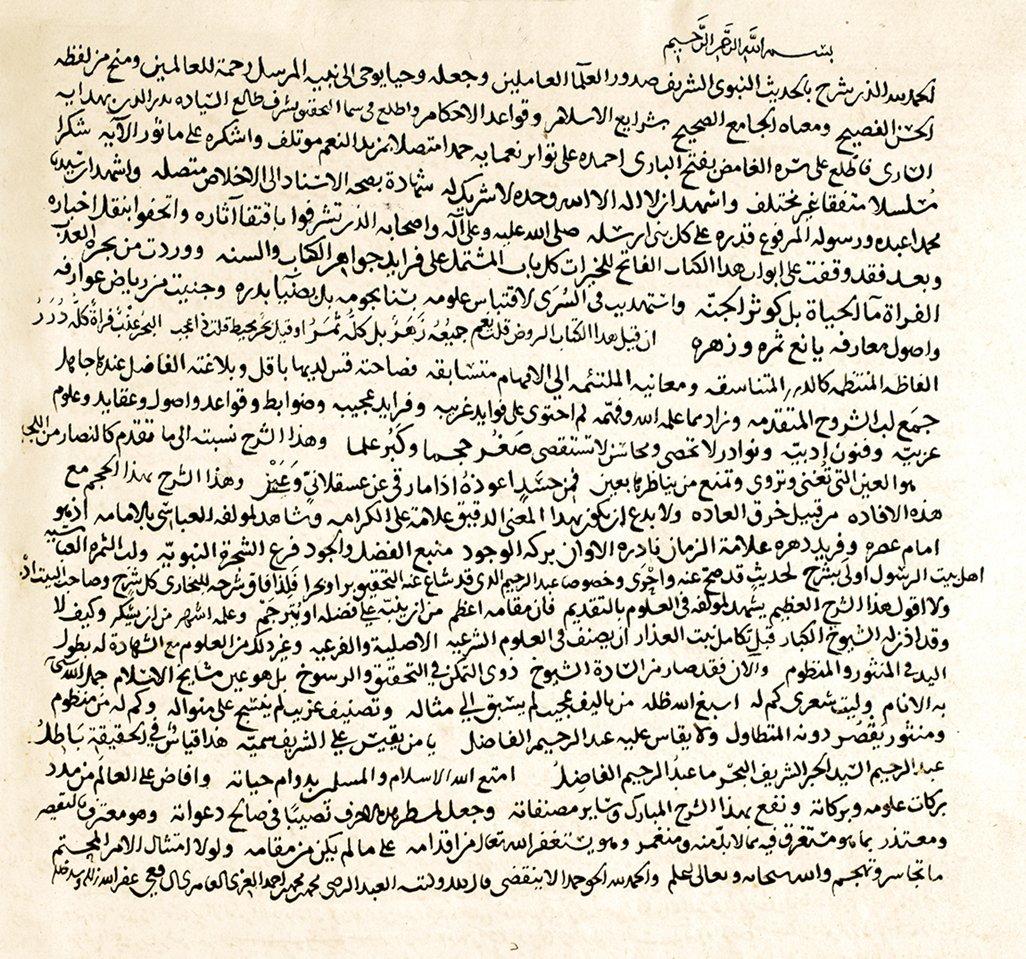 بسم الله الرحمن الرحيم
الحمد لله الذي شرح بالحديث النبوي الشريف صدور العلما العاملين وجعله وحيا يوحى الى نبيه المرسل رحمة للعالمين ومنح من لفظه
الحسن الفصيح ومعناه الجامع الصحيح شرايع الاسلام وقواعد الاحكام واطلع في سما التحقيق بشرف طالع السياده بدر الدين بهدايه
الساري فاطلع على سره الغامض بفتح الباري احمده على تواتر نعمايه حمدا متصلا بمزيد النعم موتلف واشكره على ماثور الآيه شكرا
مسلسلا متفقا غير مختلف واشهد ان لا اله الا الله وحده لا شريك له شهادة بصحه الاسناد الى الاخلاص متصله واشهد ان سيدنا
محمدا عبده ورسوله المرفوع قدره على كل نبي ارسله صلى الله عليه وعلى آله واصحابه الذين تشرفوا باقتفا آثاره واتحفوا بنقل اخباره
وبعد فقد وقفت على ابواب هذا الكتاب الفاتح للخيرات كل باب المشتمل على فرايد جواهر الكتاب والسنه ووردت من بحره العذب
الفرات ما الحياة بل كوثر الجنه واستهديت في السرى لاقتباس علومه بسنا نجومه بل بضيا بدره وجنيت من رياض عوارفه
واصول معارفه يانع ثمره وزهره ان قيل هذا الكتاب الروض قلت نعم جميعه زهر بل كله ثمر او قيل بحر محيط قلت ذا عجب البحر عذب فرات كله درر
الفاظه المنتظمه كالدرر المتناسقه ومعانيه الملتئمه الى الافهام متسابقه فصاحته قس لديها باقل وبلاغته الفاضل عندها جاهل
جمع لب الشروح المتقدمه وزاد بما علمه الله وفهمه لم احتوى على فوايد غريبه وفرايد عجيبه وضوابط وقواعد واصول وعقايد وعلوم
عربيه وفنون ادبيه ونوادر لا تحصى ومحاسن لا تستقصى صغر حجما وكبر علما وهذا الشرح نسبته الى ما تقدم كالنضار من اللجين
هو العين التي تغني وتروي وتمنع من يناظرها بعين فمن حسد اعوذه اذا ما رقى عن عسقلاني وعيني وهذا الشرح بهذا الحجم مع
هذه الافاده من قبيل خرق العاده ولا بدع ان يكون بهذا المعنى الدقيق علامة على الكرامه وشاهد لمولفه العباسي بالامامه اذ هو
امام عصره وفريد دهره علامة الزمان نادره الاوان بركه الوجود منبع الفضل والجود فرع الشجرة النبويه ولب الثمره العباسيه
اهل بيت الرسول اولى بشرح لحديث قد صح عنه واحرى وخصوصا عبد الرحيم الذي قد شاع عنه التحقيق برا وبحرا فلذا فاق شرحه للبخاري كل شرح وصاحب البيت ادرى
ولا اقول هذا الشرح العظيم يشهد لمولفه في العلوم بالتقديم فان مقامه اعظم من ان ينبه على فضله او يترجم وعلمه اشهر من ان يشكر وكيف لا
وقد اذن له الشيوخ الكبار قبل تكامل نبت العذار ان يصنف في العلوم الشرعيه الاصليه والفرعيه وغير ذلك من العلوم مع الشهادة له بطول
اليد في المنثور والمنظوم والان فقد صار من السادة الشيوخ ذوي التمكن في التحقيق والرسوخ بل هو عين مشايخ الاسلام جمل الله
به الانام وليت شعري كم له اسبغ الله ظله من تاليف عجيب لم يسبق الى مثاله وتصنيف غريب لم ينسج على منواله وكم له من منظوم
ومنثور يقصر دونه المتطاول ولا يقاس عليه عبد الرحيم الفاضل يا من يقيس على الشريف سميه هذا قياس في الحقيقة باطل
عبد الرحيم السيد الحبر الشريف البحر ما عبد الرحيم الفاضل امتع الله الاسلام والمسلمين بدوام حياته وافاض على العالم من مدد
بركات علومه وبركاته ونفع بهذا الشرح المبارك وساير مصنفاته وجعل لمسطر هذه الاحرف نصيبا في صالح دعواته وهو معترف بالنقصه
ومعتذر بما هو مستغرق فيه مما لا بد منه ومنغمر وهو يستغفر الله تعالى من اقدامه على ما لم يكن من مقامه ولولا امتثال الامر المحتم
ما تجاسر وتهجم والله سبحانه وتعالى اعلم والحمد لله الحق حمدا لا ينقضي قال ذلك وكتبه العبد الرضي محمد بن محمد بن احمد الغزي العامري الشافعي عفر الله